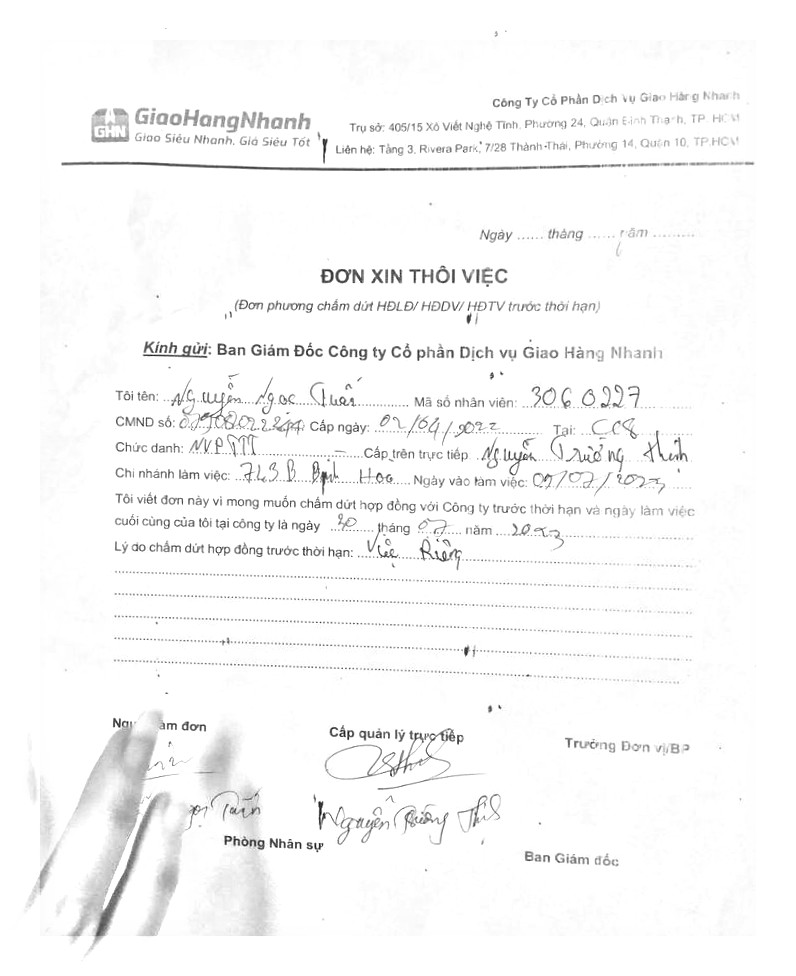 GHN
GiaoHangNhanh
Giao Siêu Nhanh, Giá Siêu Tốt
Công Ty Cổ Phần Dịch Vụ Giao Hàng Nhanh
Trụ sở: 405/15 Xô Viết Nghệ Tĩnh, Phường 24, Quận Bình Thạnh, TP. HCM
Liên hệ: Tầng 3, Rivera Park, 7/28 Thành Thái, Phường 14, Quận 10, TP.HCM
Ngày ...... tháng ...... năm .........
ĐƠN XIN THÔI VIỆC
(Đơn phương chấm dứt HĐLĐ/ HĐDV/ HĐTV trước thời hạn)
Kính gửi: Ban Giám Đốc Công ty Cổ phần Dịch vụ Giao Hàng Nhanh
Tôi tên: Nguyễn Ngọc Tuấn Mã số nhân viên: 3060227
CMND số: Cấp ngày: 02/04/2022 Tại: CCS
Chức danh: NVPTTT Cấp trên trực tiếp Nguyễn Trường Thịnh
Chi nhánh làm việc: 743B Bình Hoà Ngày vào làm việc: 07/2023
Tôi viết đơn này vì mong muốn chấm dứt hợp đồng với Công ty trước thời hạn và ngày làm việc
cuối cùng của tôi tại công ty là ngày 30 tháng 07 năm 2023
Lý do chấm dứt hợp đồng trước thời hạn: Việc Riêng
làm đơn
Cấp quản lý trực tiếp
Trưởng Đơn vị/BP
Tuấn
Nguyễn Trường Thịnh
Phòng Nhân sự
Ban Giám đốc